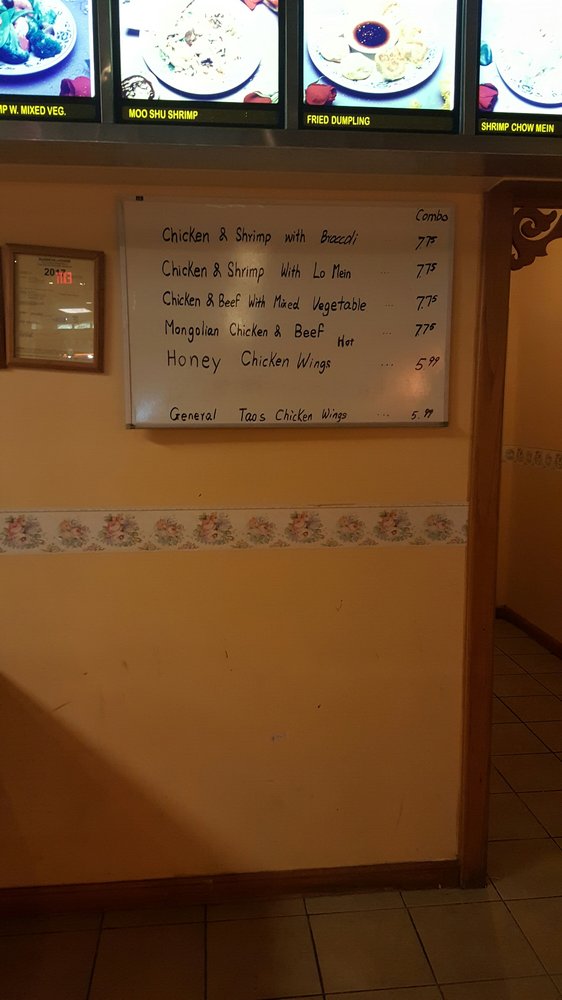 MP W. MIXED VEG.
MOO SHU SHRIMP
FRIED DUMPLING
SHRIMP CHOW MEIN
Combo
Chicken & Shrimp with Broccoli 7.75
Chicken & Shrimp With Lo Mein ... 7.75
Chicken & Beef With Mixed Vegetable ... 7.75
Mongolian Chicken & Beef Hot ... 7.75
Honey Chicken Wings ... 5.99
General Tao's Chicken Wings .... 5.99
2017